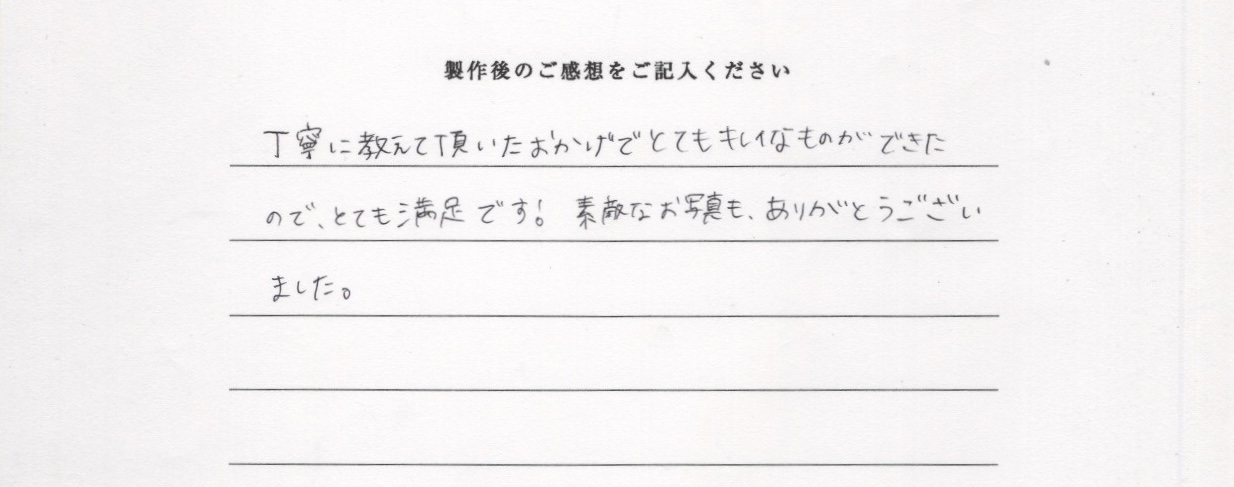 製作後のご感想をご記入ください
丁寧に教えて頂いたおかげでとてもキレイなものができた
ので、とても満足です! 素敵なお写真も、ありがとうござい
ました。